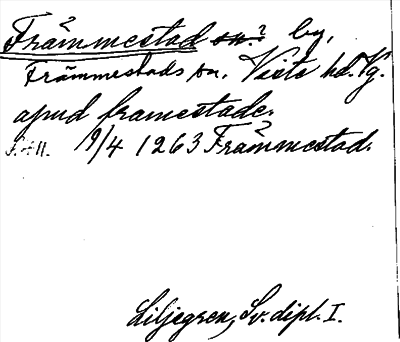 Främmestad sn.? by,
Främmestads sn. Viste hd. Vg.
apud framestade.
9/4 1263 Främmestad.
Liljegren, Sv. dipl. I.